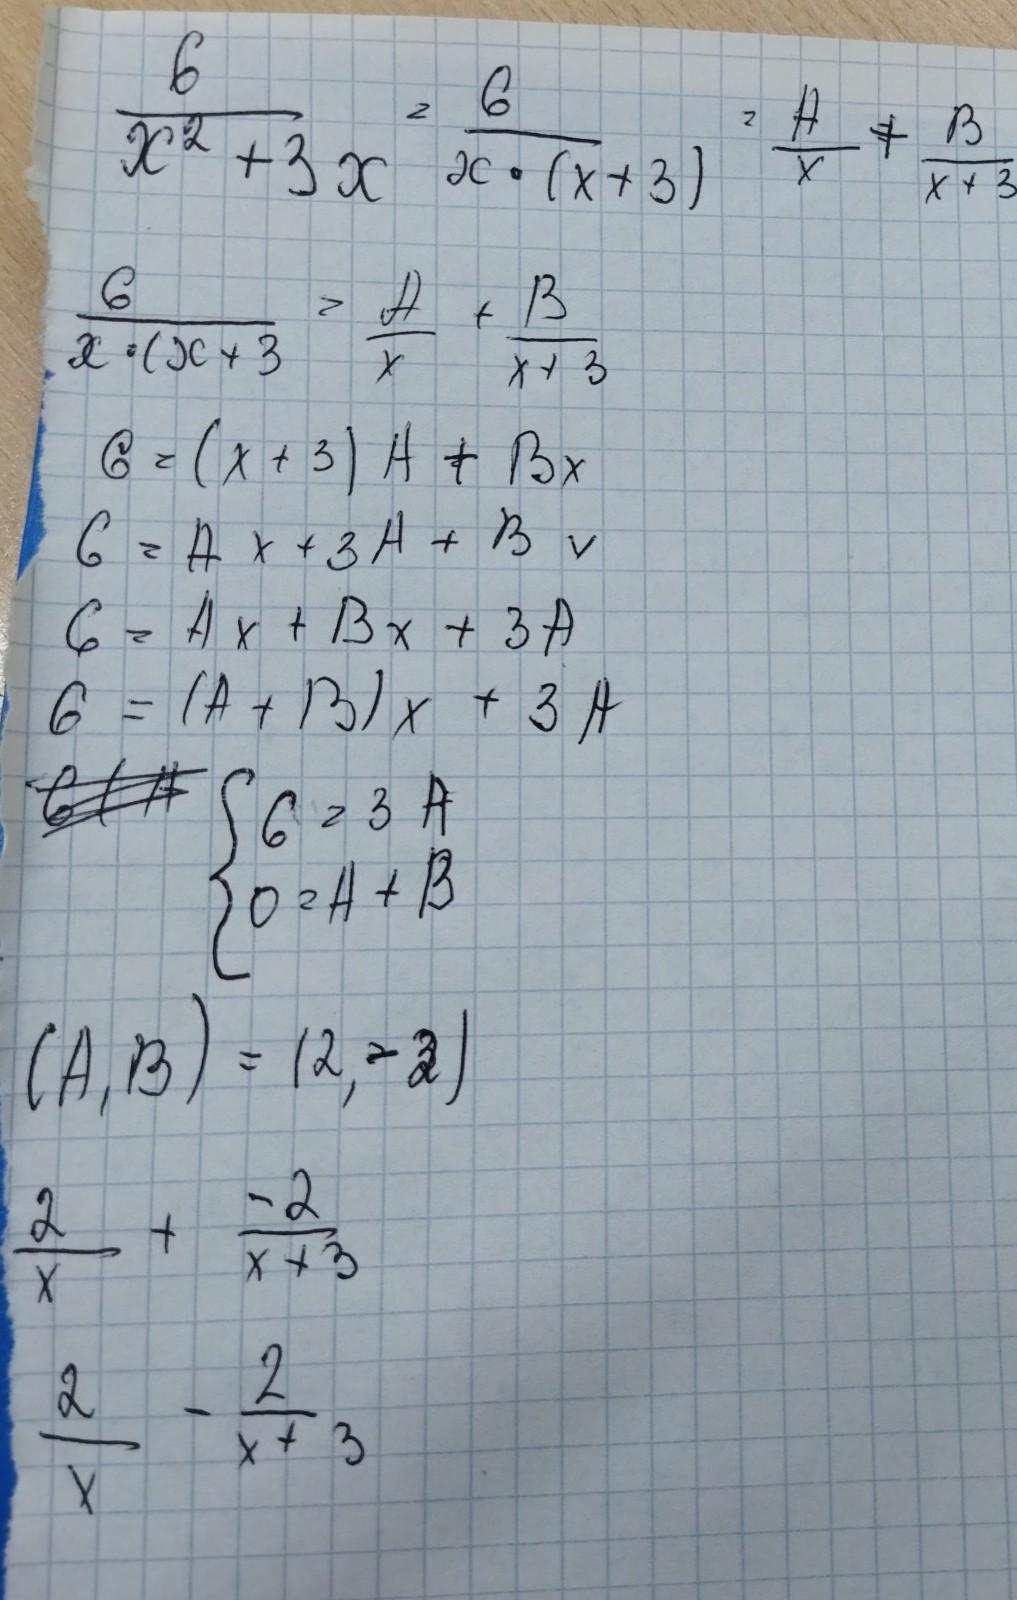 6/(x² + 3x) = 6/(x · (x + 3)) = A/x + B/(x + 3)
6/(x · (x + 3) = A/x + B/(x + 3)
6 = (x + 3) A + Bx
6 = A x + 3A + B v
6 = Ax + Bx + 3A
6 = (A + B) x + 3A
{ 6 = 3A
0 = A + B
(A, B) = (2, -2)
2/x + -2/(x + 3)
2/x - 2/(x + 3)